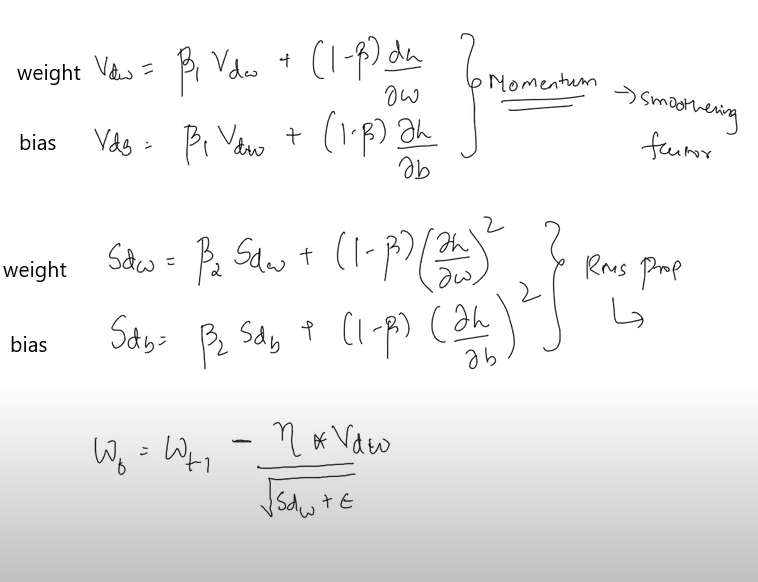 weight Vdw = β₁ Vdw + (1-β) ∂h/∂w
bias Vdb = β₁ Vdw + (1-β) ∂h/∂b
Momentum → smoothering
factor
weight Sdw = β₂ Sdw + (1-β) (∂h/∂w)²
bias Sdb = β₂ Sdb + (1-β) (∂h/∂b)²
Rms prop
↳
Wt = Wt-1 - η * Vdw / √(Sdw + ϵ)